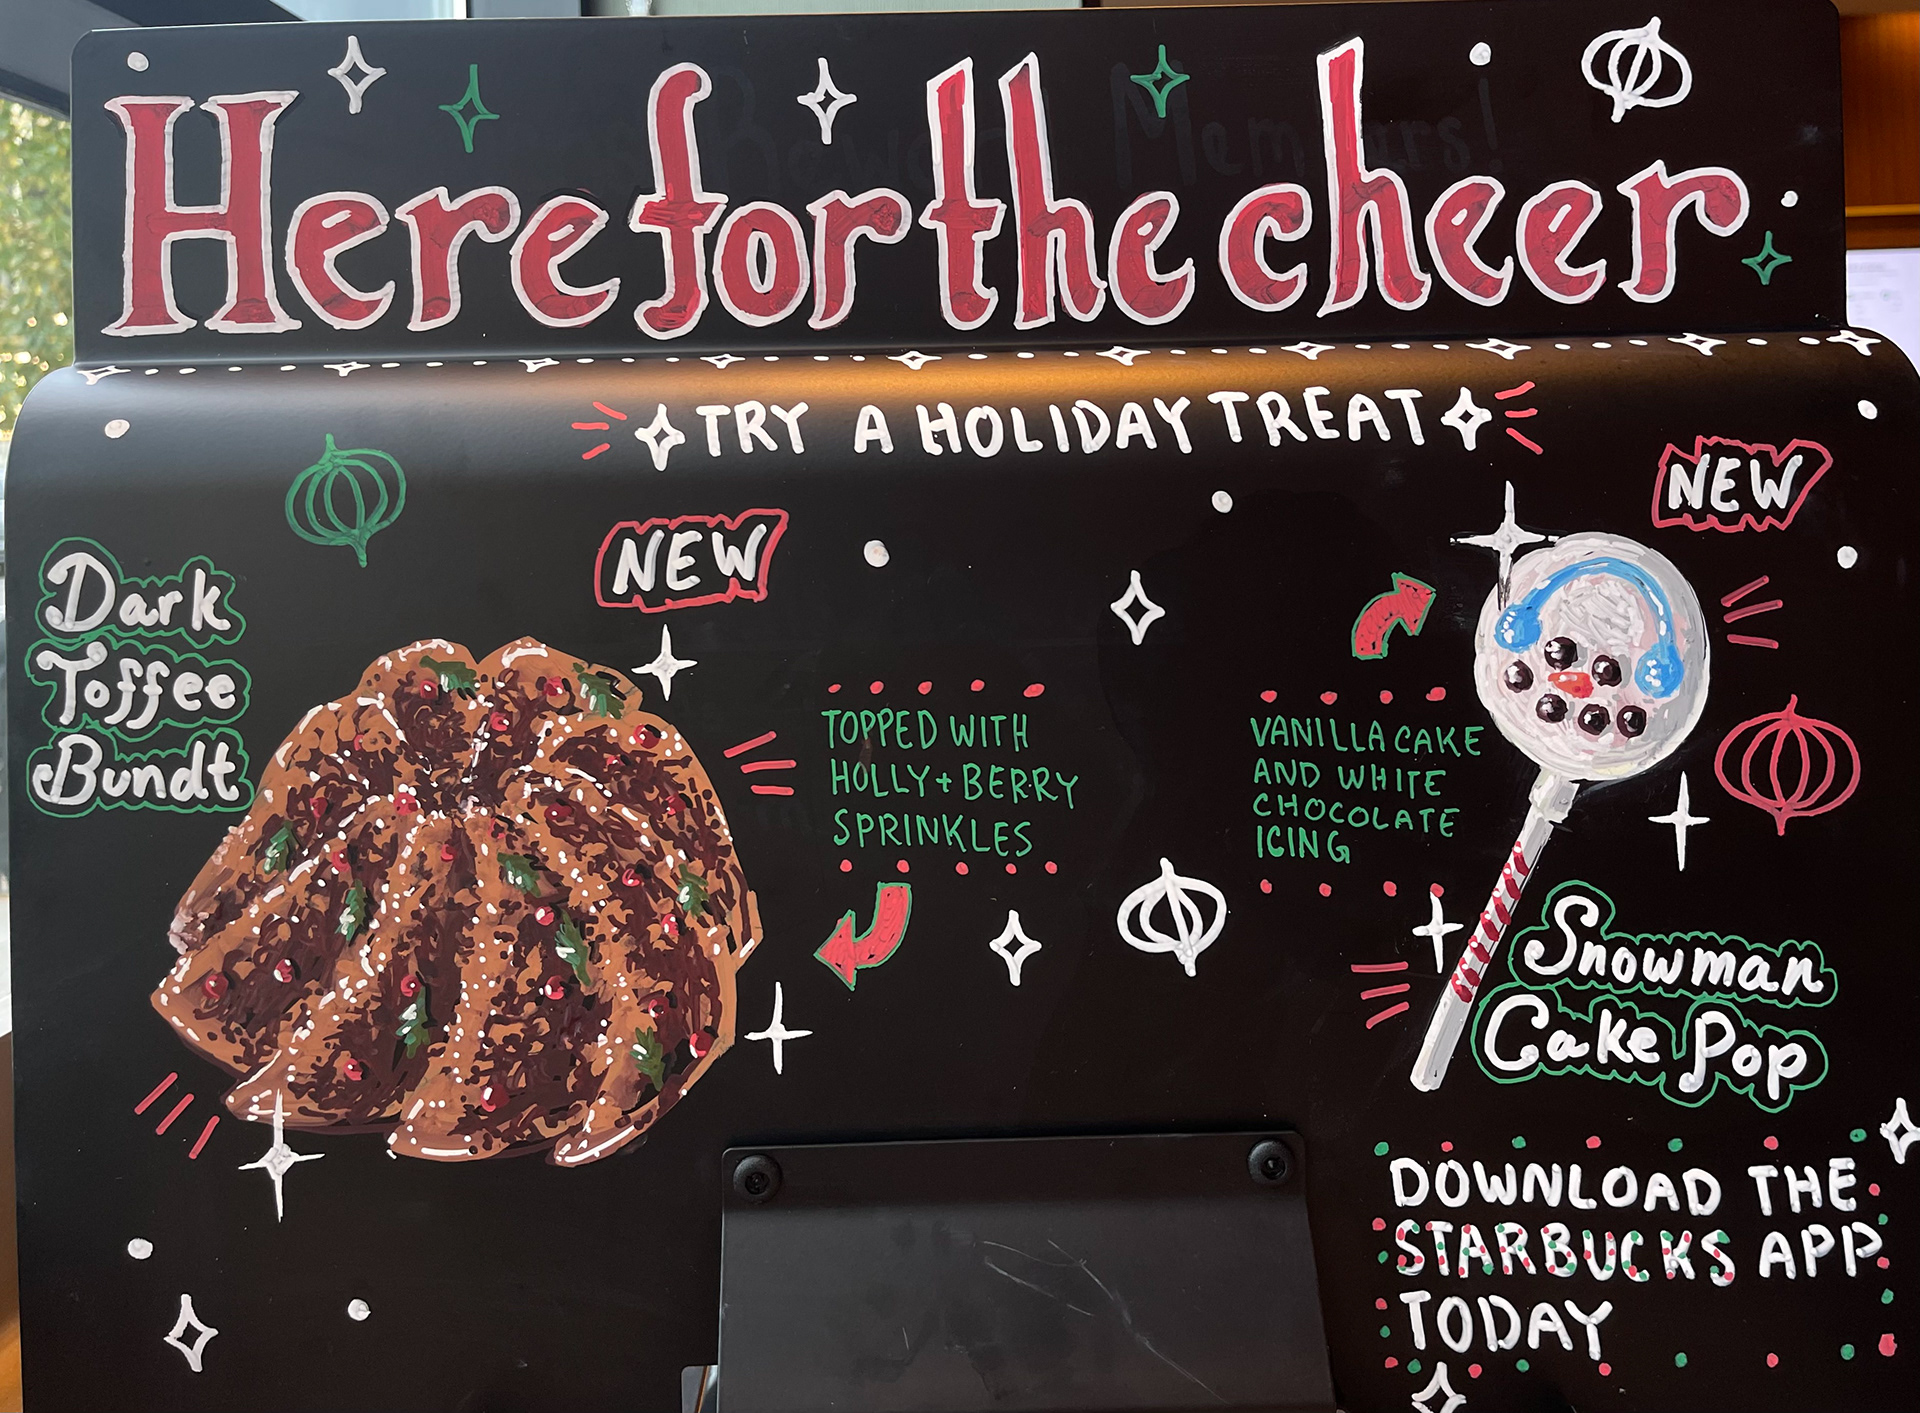 Here for the cheer
TRY A HOLIDAY TREAT
NEW
NEW
Dark
Toffee
Bundt
TOPPED WITH
HOLLY + BERRY
SPRINKLES
VANILLA CAKE
AND WHITE
CHOCOLATE
ICING
Snowman
Cake Pop
DOWNLOAD THE
STARBUCKS APP
TODAY